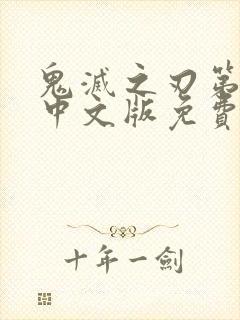 鬼滅之刃第
中文版免費
十年一劍